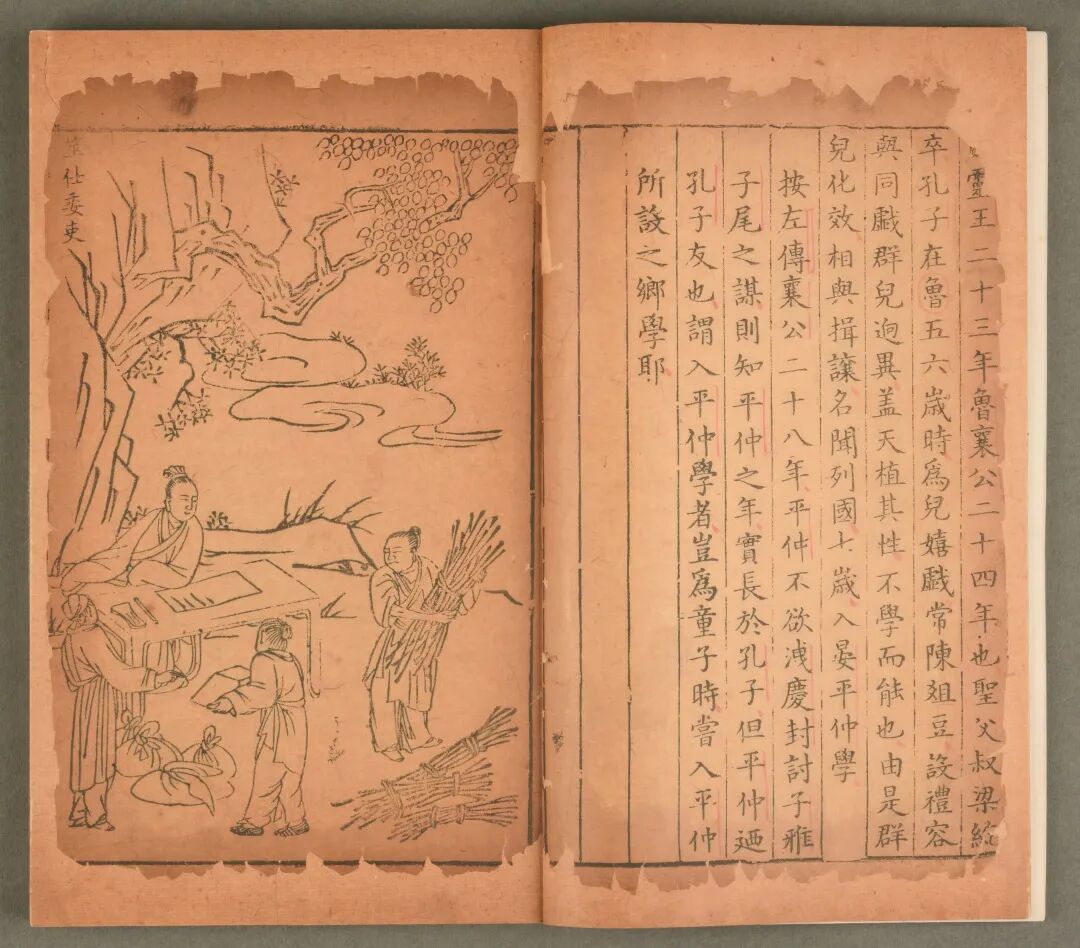 靈王二十三年魯襄公二十四年也聖父叔梁紇
卒孔子在魯五六歲時爲兒嬉戲常陳俎豆設禮容
與同戲群兒迥異蓋天植其性不學而能也由是群
兒化效相與揖讓名聞列國七歲入晏平仲學
按左傳襄公二十八年平仲不欲洩慶封討子雅
子尾之謀則知平仲之年實長於孔子但平仲迺
孔子友也謂入平仲學者豈爲童子時嘗入平仲
所設之鄉學耶
筮仕委吏